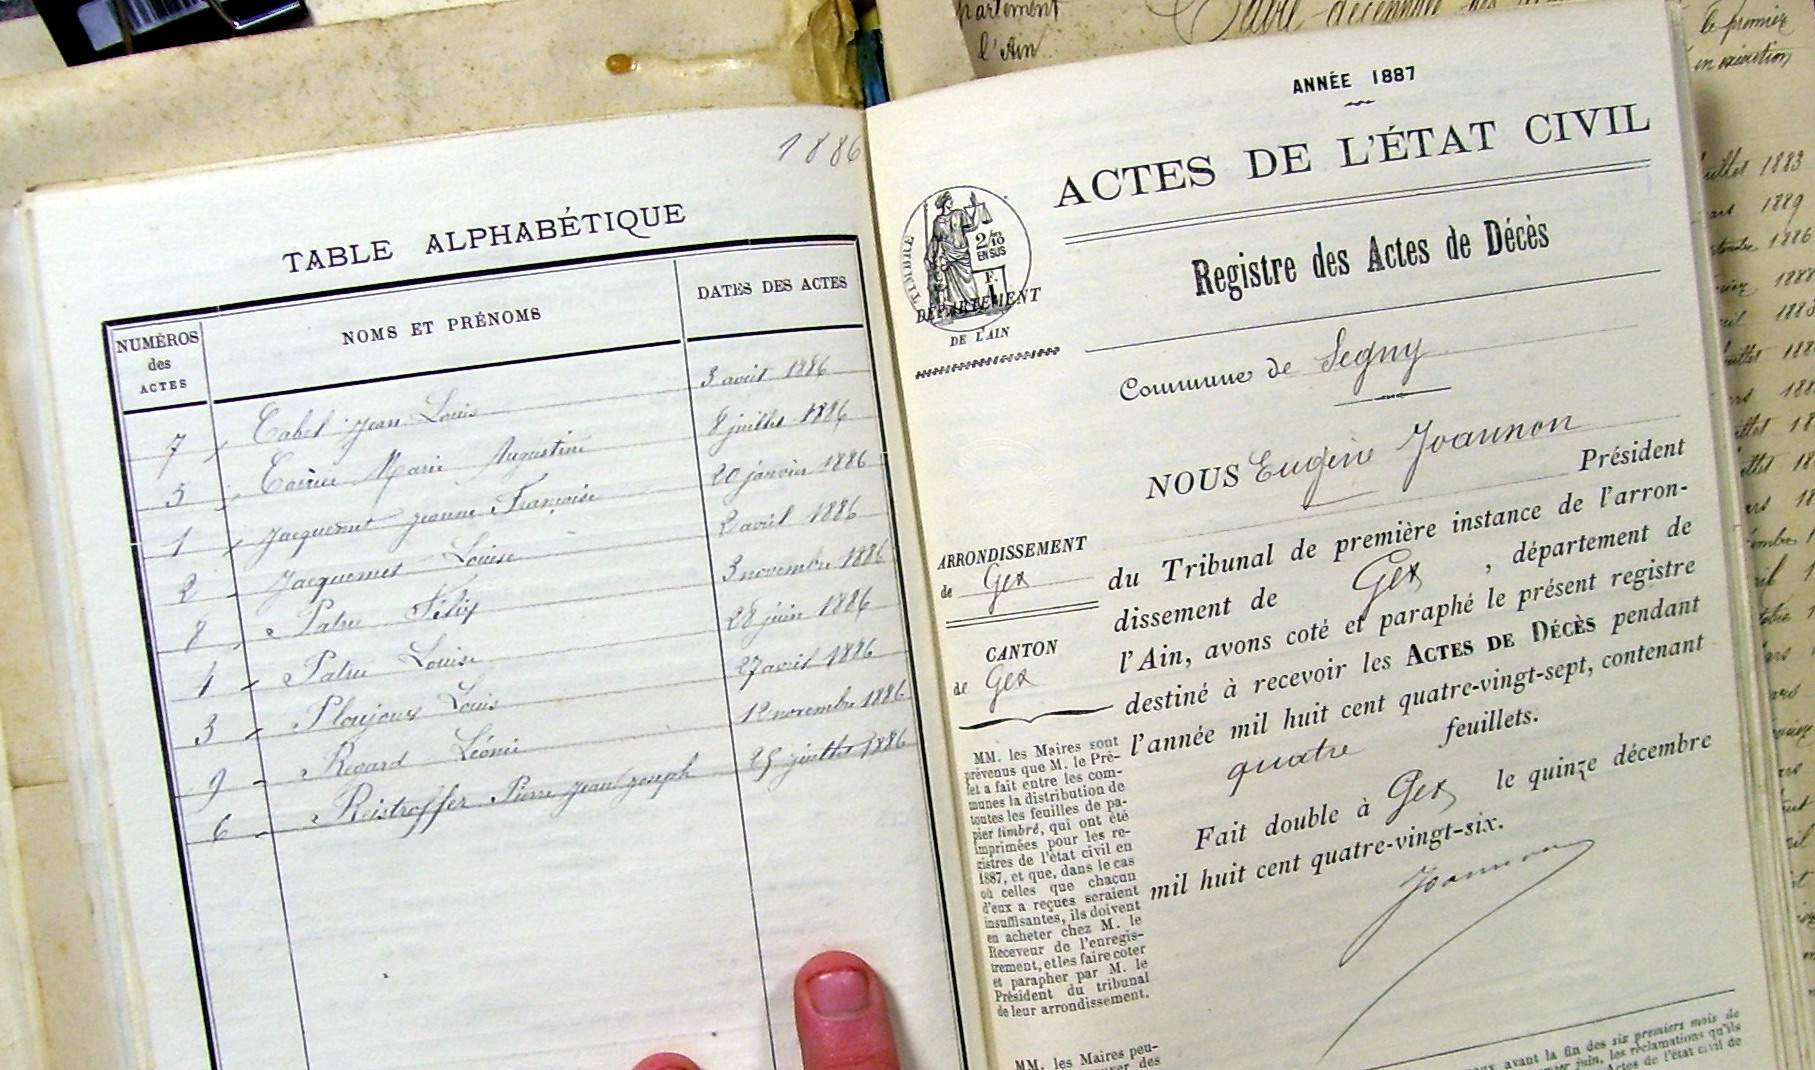 partement
l'Ain
le premier
en exécution
1886
TABLE ALPHABÉTIQUE
NUMÉROS des ACTES
NOMS ET PRÉNOMS
DATES DES ACTES
7 Jean Louis 3 août 1886
5 Marie Augustine 8 juillet 1886
1 Jacquemet Jeanne Françoise 20 janvier 1886
2 Jacquemet Louise 2 avril 1886
8 Patru Félix 3 novembre 1886
4 Patru Louise 28 juin 1886
3 Ploujoux Louis 27 avril 1886
9 Regard Léonie 12 novembre 1886
6 Reistroffer Pierre Jean Joseph 25 juillet 1886
ANNÉE 1887
ACTES DE L'ÉTAT CIVIL
TIMBRE
2/10
EN SUS
DÉPARTEMENT
DE L'AIN
Registre des Actes de Décès
Commune de Segny
NOUS Eugène Joannon
Président
ARRONDISSEMENT
de Gex
CANTON
de Gex
du Tribunal de première instance de l'arron-
dissement de Gex , département de
l'Ain, avons coté et paraphé le présent registre
destiné à recevoir les ACTES DE DÉCÈS pendant
l'année mil huit cent quatre-vingt-sept, contenant
quatre feuillets.
Fait double à Gex le quinze décembre
mil huit cent quatre-vingt-six.
Joannon
MM. les Maires sont
prévenus que M. le Pré-
fet a fait entre les com-
munes la distribution de
toutes les feuilles de pa-
pier timbré, qui ont été
imprimées pour les re-
gistres de l'état civil en
1887, et que, dans le cas
où celles que chacun
d'eux a reçues seraient
insuffisantes, ils doivent
en acheter chez M. le
Receveur de l'enregis-
trement, et les faire coter
et parapher par M. le
Président du tribunal
de leur arrondissement.
MM. les Maires peu-
avant la fin des six premiers mois de
juin, les réclamations qu'ils
Actes de l'état civil de
1883
1889
1886